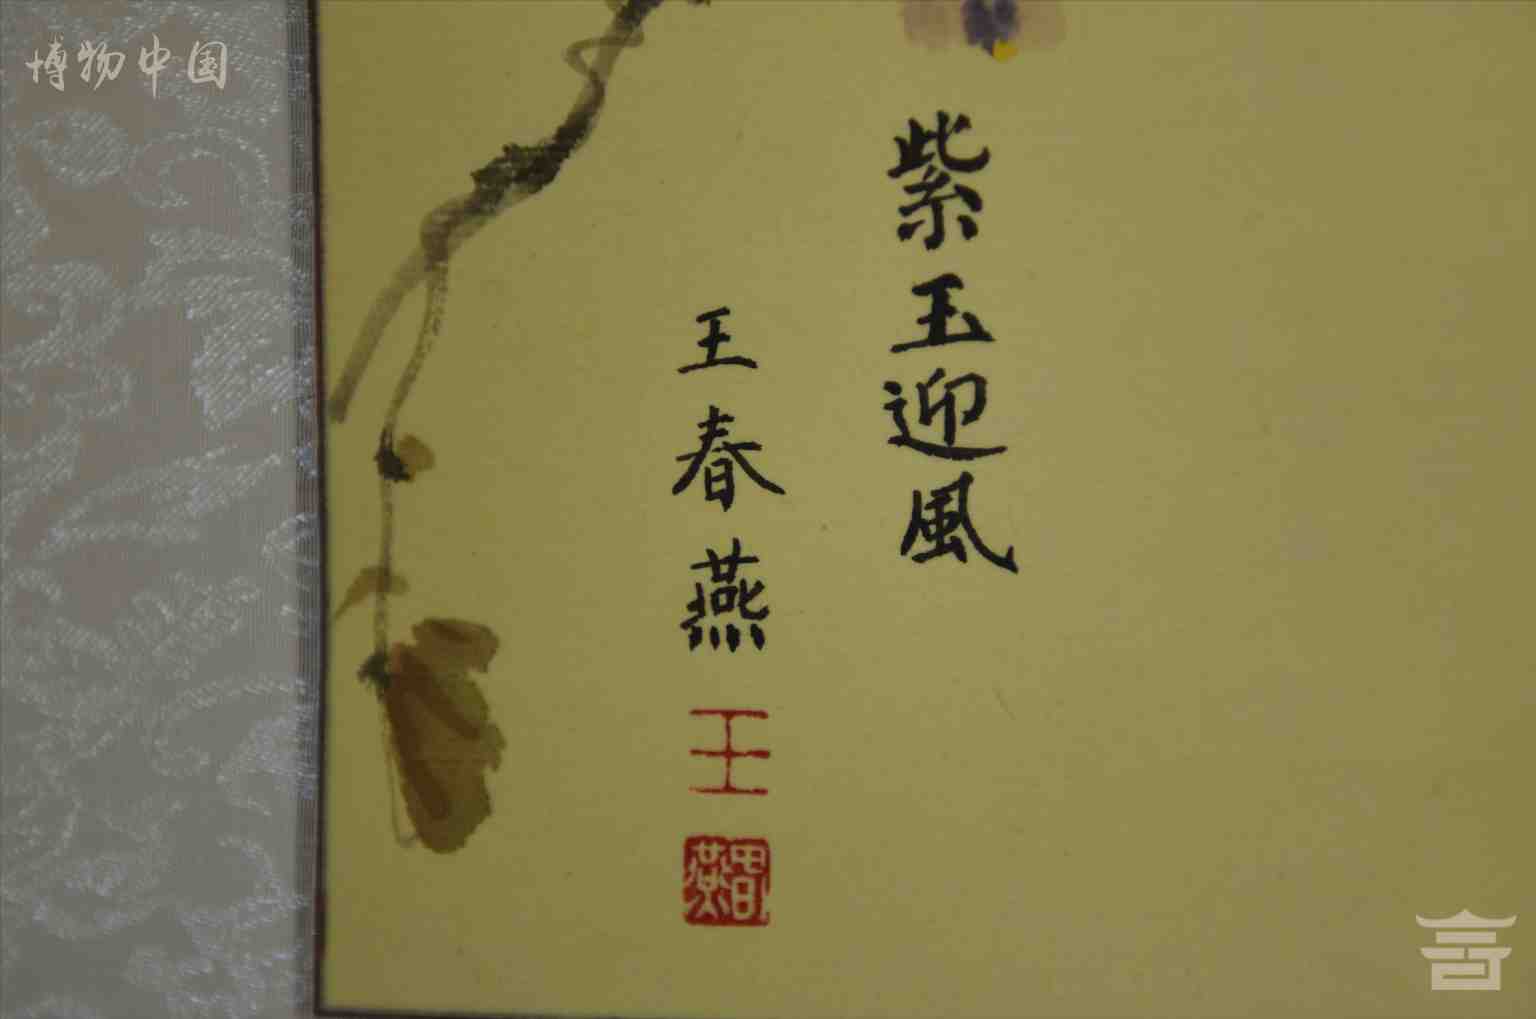 博物中国
紫玉迎風
王春燕
王
春燕